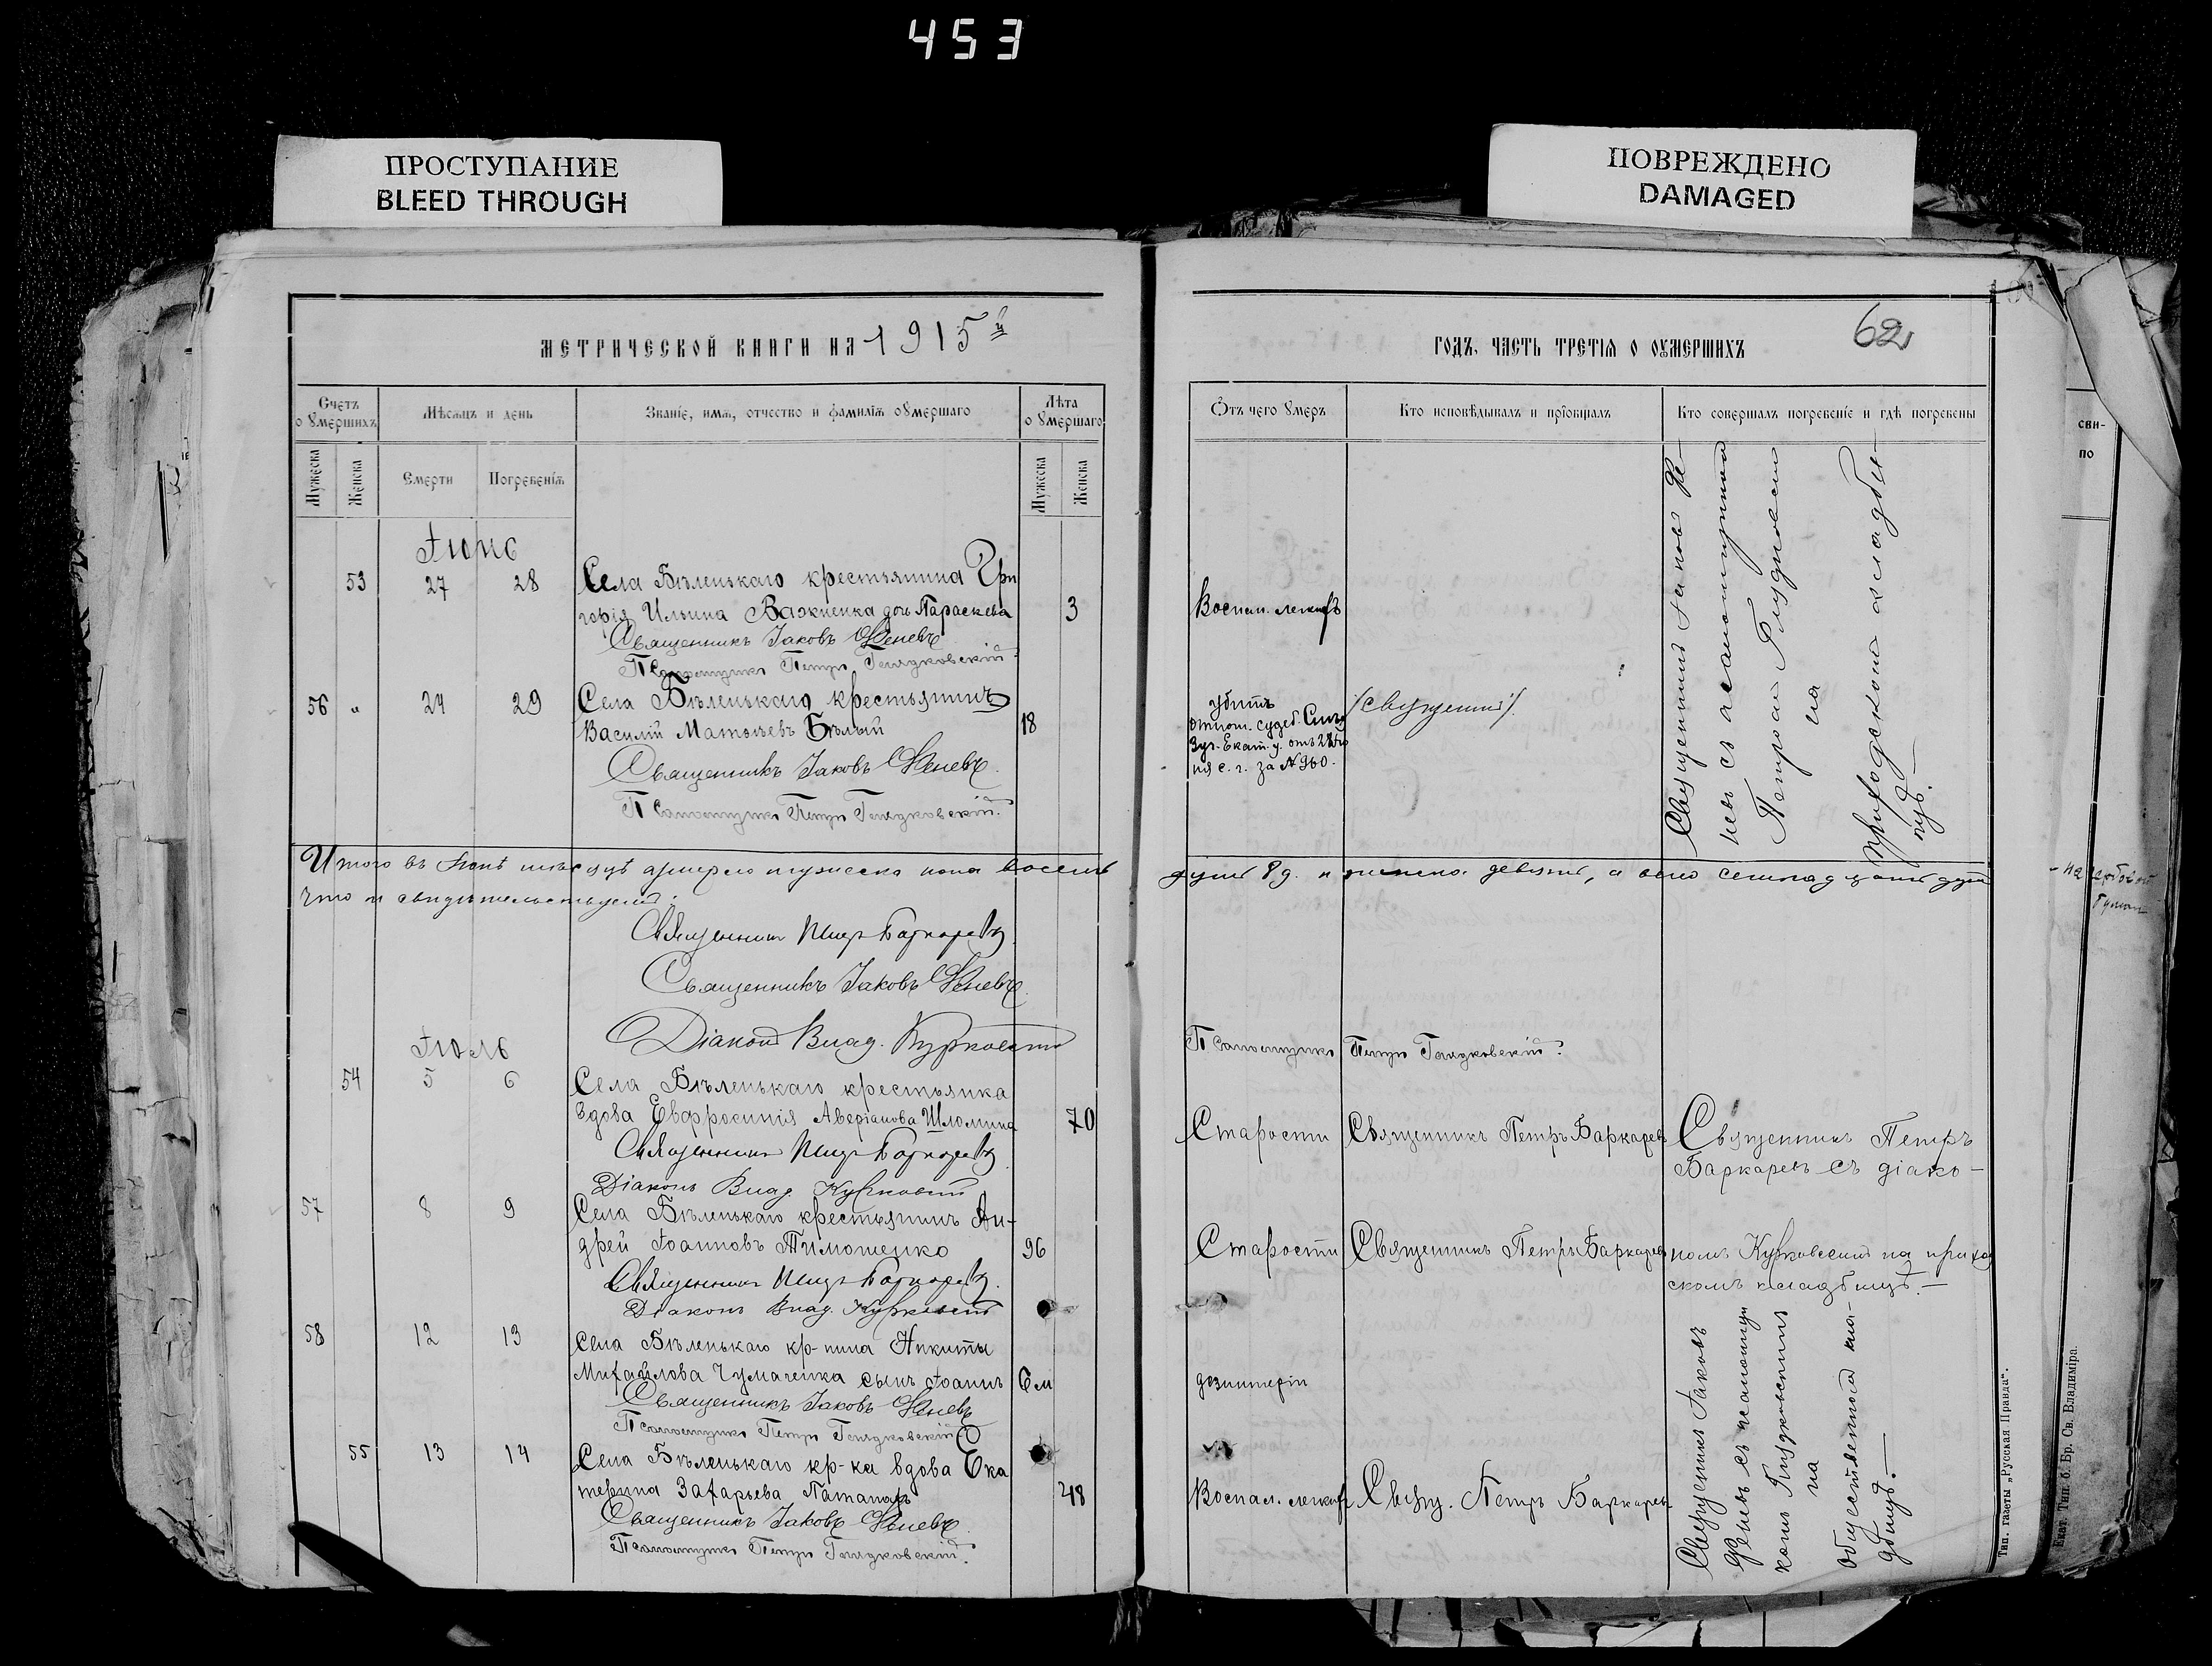 453
ПРОСТУПАНИЕ
BLEED THROUGH
ПОВРЕЖДЕНО
DAMAGED
МЕТРИЧЕСКОЙ КНИГИ НА 1915й
Счетъ
оумершихъ
Мѣсяцъ и день
Званіе, имя, отчество и фамилія оумершаго
Лѣта
оумершаго
Мужеска
Женска
Смерти
Погребенія
Мужеска
Женска
Іюнь
53 27 28 Села Бѣленькаго крестьянина Гри
горія Ильина Важненка дочь Параскева 3
Священникъ Іаковъ Ѳеневъ
Псаломщикъ Петръ Глядковскій
56 " 24 29 Села Бѣленькаго крестьянинъ
Василій Матѳѣевъ Бѣлый 18
Священникъ Іаковъ Ѳеневъ
Псаломщикъ Петръ Глядковскій.
Итого въ Іюнѣ мѣсяцѣ умерло мужеска пола восемь
что и свидѣтельствуемъ:
Священникъ Петръ Баркаревъ
Священникъ Іаковъ Ѳеневъ
Діаконъ Влад. Курковскій
Іюль
54 5 6 Села Бѣленькаго крестьянка
вдова Евфросинія Аверіанова Шломина 70
Священникъ Петръ Баркаревъ
Діаконъ Влад. Курковскій
57 8 9 Села Бѣленькаго крестьянинъ Ан-
дрей Іоанновъ Тимошенко 96
Священникъ Петръ Баркаревъ
Діаконъ Влад. Курковскій
58 12 13 Села Бѣленькаго кр-нина Никиты
Михайлова Чумаченка сынъ Іоаннъ 6м
Священникъ Іаковъ Ѳеневъ
Псаломщикъ Петръ Глядковскій
55 13 14 Села Бѣленькаго кр-ка вдова Ека
терина Захарьева 48
Священникъ Іаковъ Ѳеневъ
Псаломщикъ Петръ Глядковскій.
ГОДЪ, ЧАСТЬ ТРЕТІЯ О ОУМЕРШИХЪ
62
Отъ чего умеръ
Кто исповѣдывалъ и пріобщалъ
Кто совершалъ погребеніе и гдѣ погребены
Воспал. легкихъ
убитъ
отнош. судеб. Слѣд
3 уч. Екат. у. отъ
ня с. г. за № 960.
Священникъ Іаковъ Ѳе-
невъ съ псаломщикомъ
Петромъ Глядковскимъ
на
приходскомъ кладби-
щѣ.—
душъ 8 д. и женска девять, а всего семнадцать душъ
Псаломщикъ Петръ Глядковскій.
Старости Священникъ Петръ Баркаревъ Священникъ Петръ
Баркаревъ съ діако-
Старости Священникъ Петръ Баркаревъ номъ Курковскимъ на приход
скомъ кладбищѣ.—
дезинтерія
Воспал. легкихъ Свящ. Петръ Баркаревъ
Священникъ Іаковъ
Ѳеневъ съ псаломщи
комъ Глядковскимъ
на
общественномъ кла-
дбищѣ.—
Тип. газеты „Русская Правда“.
Екат. Тип. б. Бр. Св. Владиміра.
сви-
по